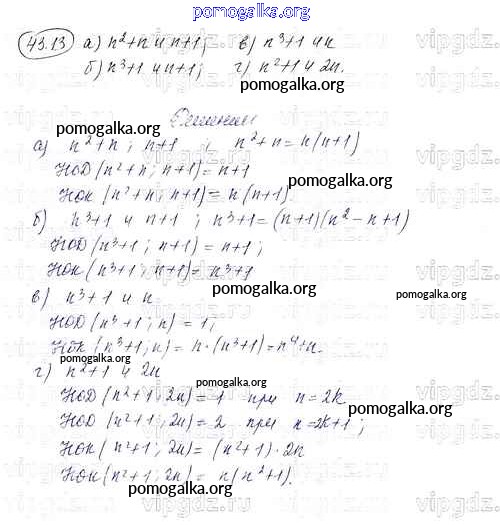 pomogalka.org
43.13 а) n²+n и n+1; в) n³+1 и n
б) n³+1 и n+1; г) n²+1 и 2n.
pomogalka.org
Решение
pomogalka.org
а) n²+n; n+1; n²+n=n(n+1)
НОД(n²+n; n+1)=n+1
pomogalka.org
НОК(n²+n; n+1)=n(n+1).
б) n³+1 и n+1; n³+1=(n+1)(n²-n+1)
НОД(n³+1; n+1)=n+1;
pomogalka.org
НОК(n³+1; n+1)=n³+1
в) n³+1 и n
pomogalka.org
НОД(n³+1; n)=1;
НОК(n³+1; n)=n·(n³+1)=n⁴+n.
pomogalka.org
г) n²+1 и 2n
pomogalka.org
НОД(n²+1; 2n)=1 при n=2k
НОД(n²+1; 2n)=2 при n=2k+1;
pomogalka.org
НОК(n²+1; 2n)=(n²+1)·2n
НОК(n²+1; 2n)=n(n²+1).
pomogalka.org